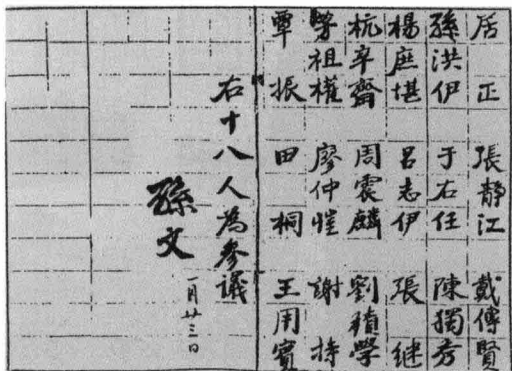 居正　張靜江　戴傳賢
孫洪伊　于右任　陳獨秀
楊庶堪　呂志伊　張繼
杭辛齋　周震麟　劉積學
詹祖權　廖仲愷　謝持
覃振　田桐　王用賓
右十八人為參議
孫文
一月廿三日